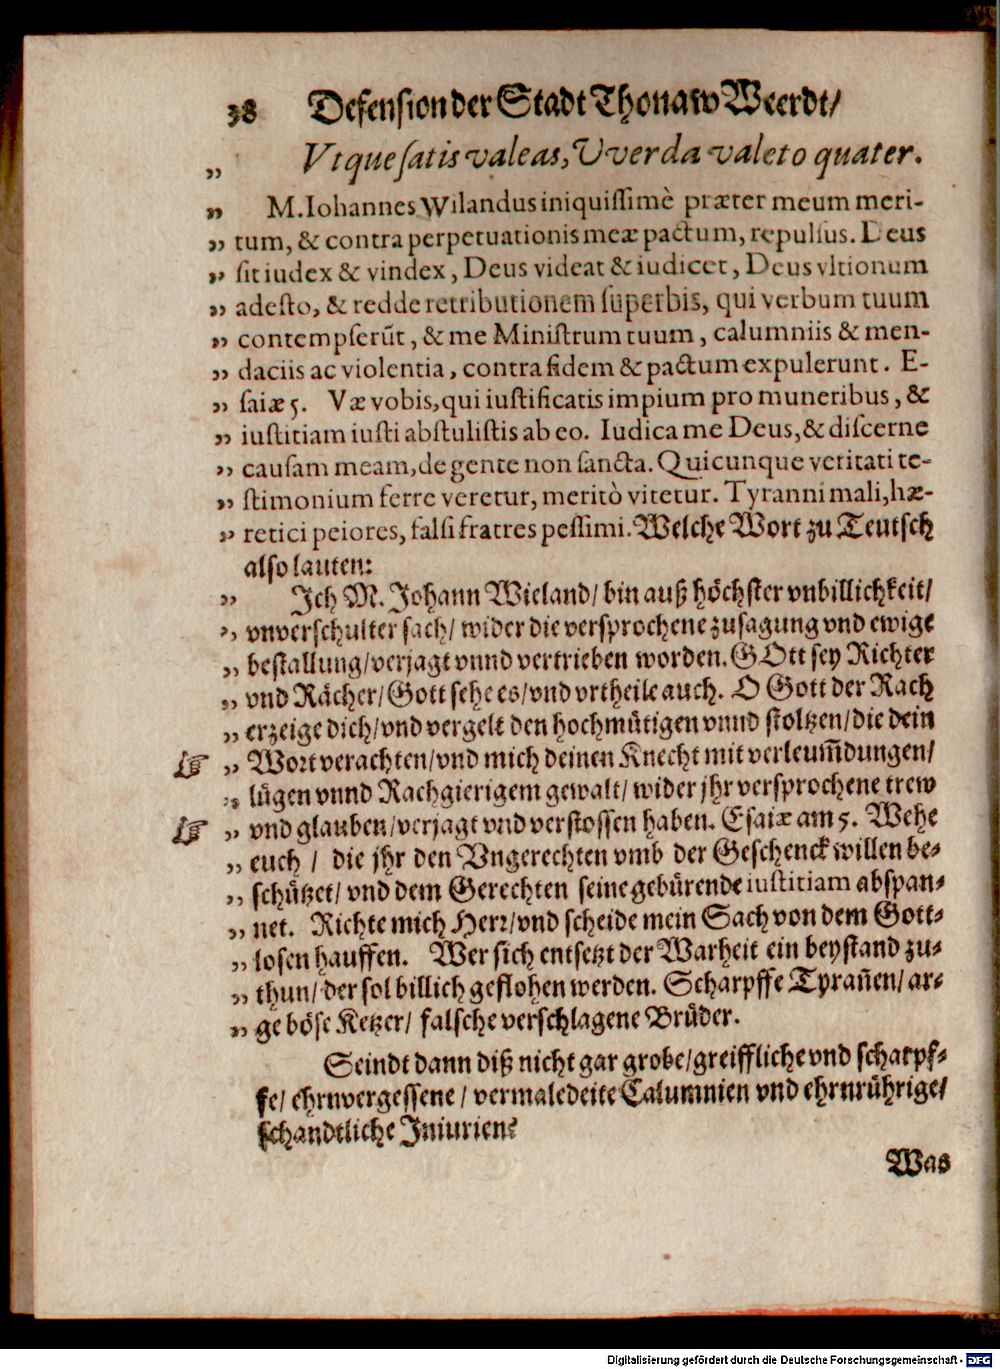 38 Defension der Stadt Thonaw Weerdt/
„ Vtque ſatis valeas, Vverda valeto quater.
„ M. Iohannes Wilandus iniquiſſimè præter meum meri-
„ tum, & contra perpetuationis meæ pactum, repulſus. Deus
„ ſit iudex & vindex, Deus videat & iudicet, Deus vltionum
„ adeſto, & redde retributionem ſuperbis, qui verbum tuum
„ contempſerūt, & me Miniſtrum tuum, calumniis & men-
„ daciis ac violentia, contra fidem & pactum expulerunt. E-
„ ſaiæ 5. Væ vobis, qui iuſtificatis impium pro muneribus, &
„ iuſtitiam iuſti abſtuliſtis ab eo. Iudica me Deus, & diſcerne
„ cauſam meam, de gente non ſancta. Quicunque veritati te-
„ ſtimonium ferre veretur, meritò vitetur. Tyranni mali, hæ-
„ retici peiores, falſi fratres peſſimi. Welche Wort zu Teutſch
alſo lauten:
„ Jch M. Johann Wieland/ bin auß höchſter vnbillichkeit/
„ vnverſchulter ſach/ wider die verſprochene zuſagung vnd ewige
„ beſtallung/ verjagt vnnd vertrieben worden. GOtt ſey Richter
„ vnd Rächer/ Gott ſehe es/ vnd vrtheile auch. O Gott der Rach
„ erzeige dich/ vnd vergelt den hochmütigen vnnd ſtoltzen/ die dein
☞ „ Wort verachten/ vnd mich deinen Knecht mit verleum̃dungen/
„ lügen vnnd Rachgierigem gewalt/ wider jhr verſprochene trew
☞ „ vnd glauben/ verjagt vnd verſtoſſen haben. Eſaiæ am 5. Wehe
„ euch / die jhr den Vngerechten vmb der Geſchenck willen be-
„ ſchützet/ vnd dem Gerechten ſeine gebürende iuſtitiam abſpan-
„ net. Richte mich Herr/ vnd ſcheide mein Sach von dem Gott-
„ loſen hauffen. Wer ſich entſetzt der Warheit ein beyſtand zu-
„ thun/ der ſol billich geflohen werden. Scharpffe Tyrañen/ ar-
„ ge böſe Ketzer/ falſche verſchlagene Brüder.
Seindt dann diß nicht gar grobe/ greiffliche vnd ſcharpf-
fe/ ehrnvergeſſene / vermaledeite Calumnien vnd ehrnrührige/
ſchandtliche Jniurien?
Was
Digitalisierung gefördert durch die Deutsche Forschungsgemeinschaft - DFG